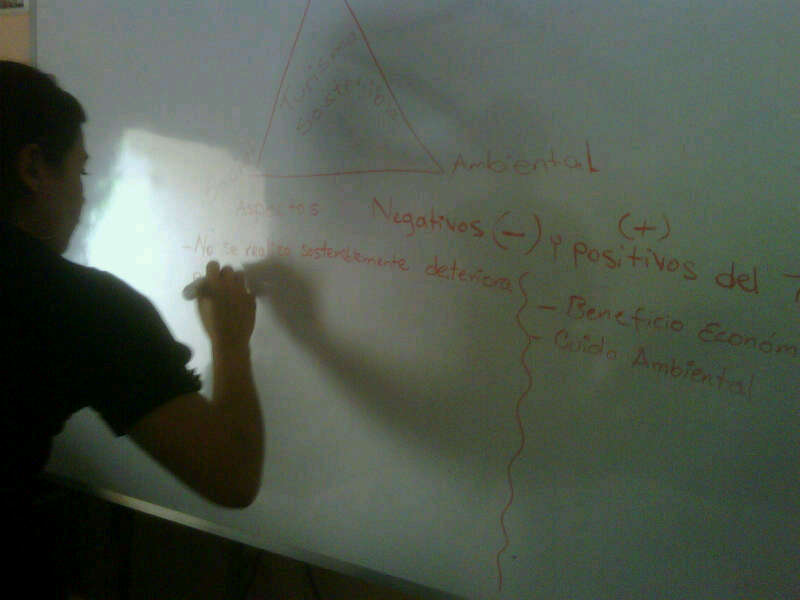 Turismo
Sostenible
Ambiental
Aspectos Negativos (-) y positivos (+) del
- No se realiza sosteniblemente deteriora
- Beneficio Económ
- Cuido Ambiental